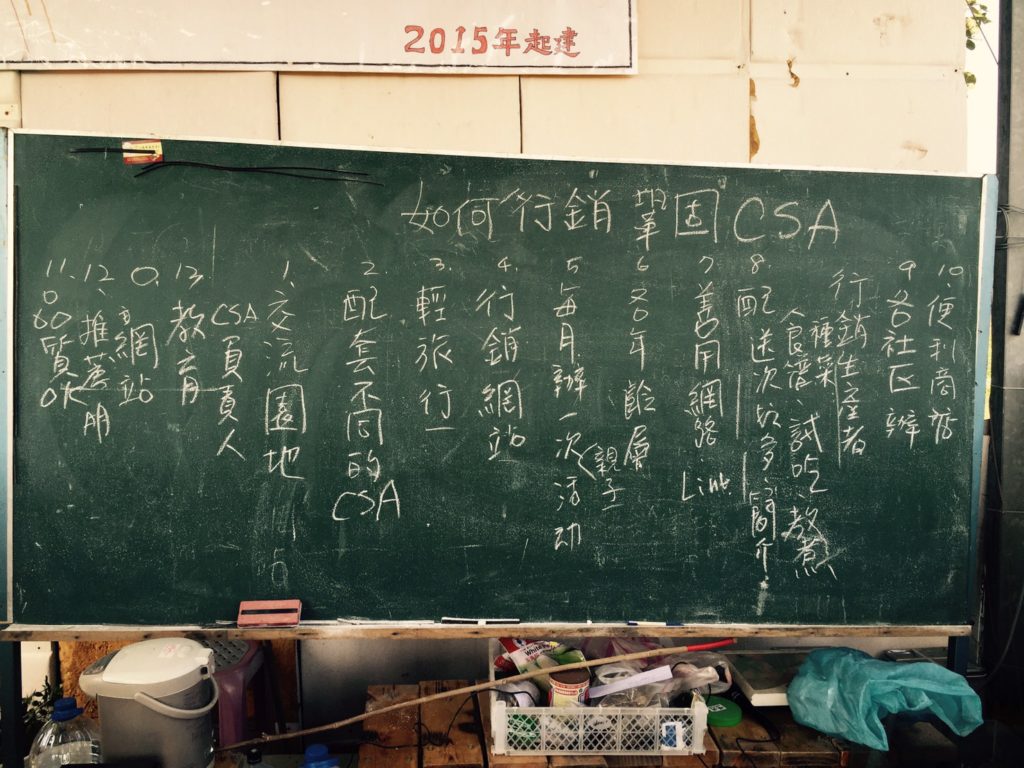 2015年起建
如何行銷鞏固CSA
1. 交流園地
2. 配套不同的CSA
3. 輕旅行
4. 行銷網站
5. 每月辦一次活动
親子
6. 各年齡層
7. 善用網路
8. 配送次数多、簡介
行銷生產者
種菜
食譜、試吃、教煮
9. 各社区辦
10. 便利商店
11. 品質OK
12. 推薦
網站
13. 教育
CSA負責人